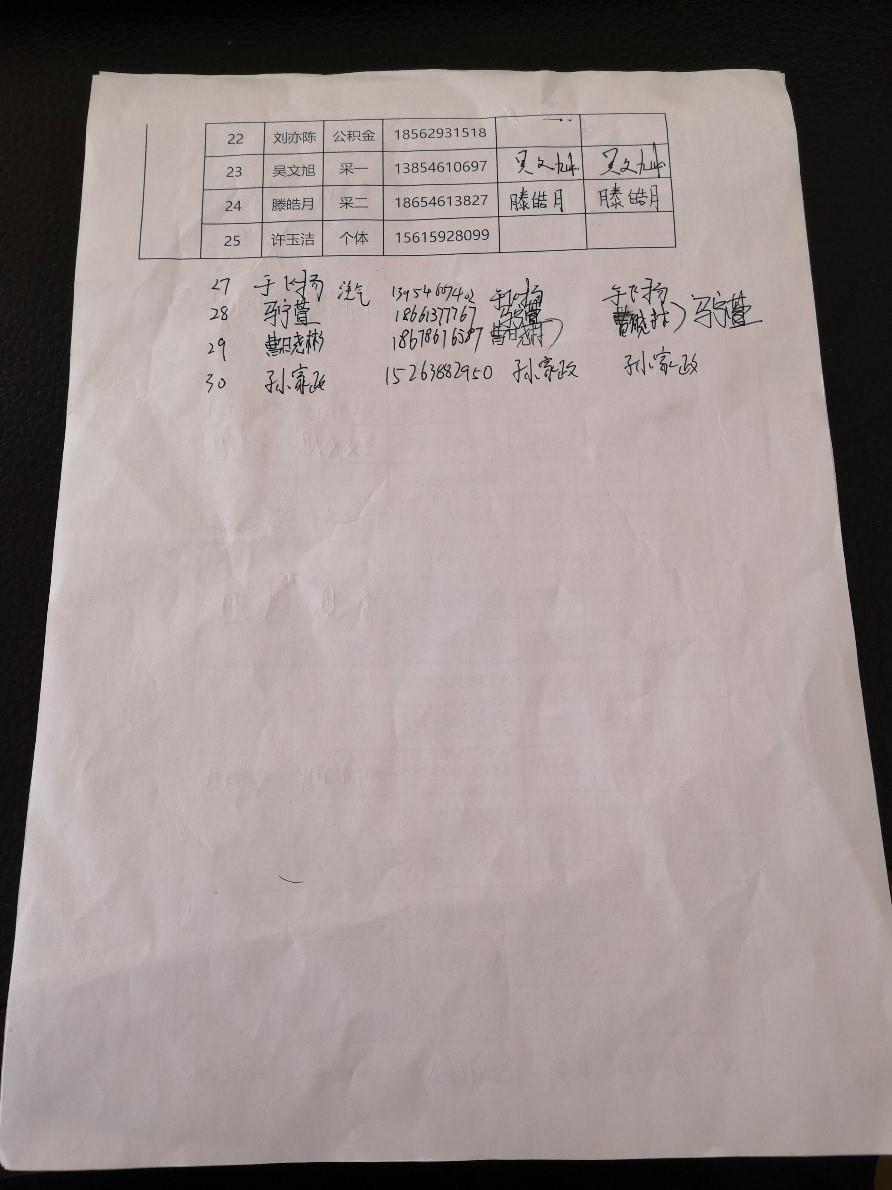 22 刘亦陈 公积金 18562931518
23 吴文旭 采一 13854610697 吴文旭 吴文旭
24 滕皓月 采二 18654613827 滕皓月 滕皓月
25 许玉洁 个体 15615928099
27 于飞扬 注气 13954657402 于飞扬 于飞扬
28 马宁萱 18661377767 马宁萱 马宁萱
29 曹晓彬 18678616587 曹晓彬 曹晓彬
30 孙家政 15263882950 孙家政 孙家政